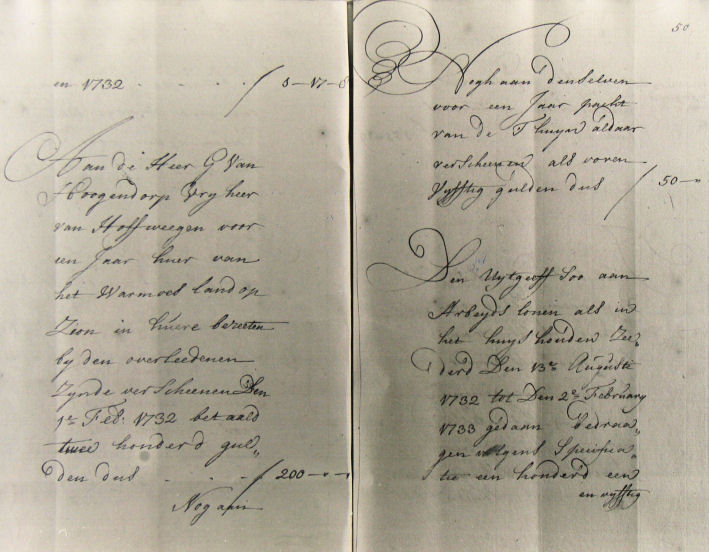 en 1732 . . . / 3-17-8
Aan de Heer G Van
Hoogendorp Vry heer
van Hoffweegen voor
een Jaar huer van
het Warmoes land op
Zion in huere bezeeten
by den overleedenen
Zynde verscheenen Den
1e Feb: 1732 betaald
twee honderd gul„
den dus . . . / 200-"-"
Nog aan
50
Nogh aan denselven
voor een Jaar pacht
van de Thuyn aldaar
verscheenen als voren
Vyfftig gulden dus / 50-"
Den Uytgeeff Soo aan
Arbeyds lonen als in
het huyshouden Zee„
derd Den 13e Auguste
1732 tot Den 2e February
1733 gedaan bedraa„
gen volgens Specifica„
tie een honderd een
en vyfftig